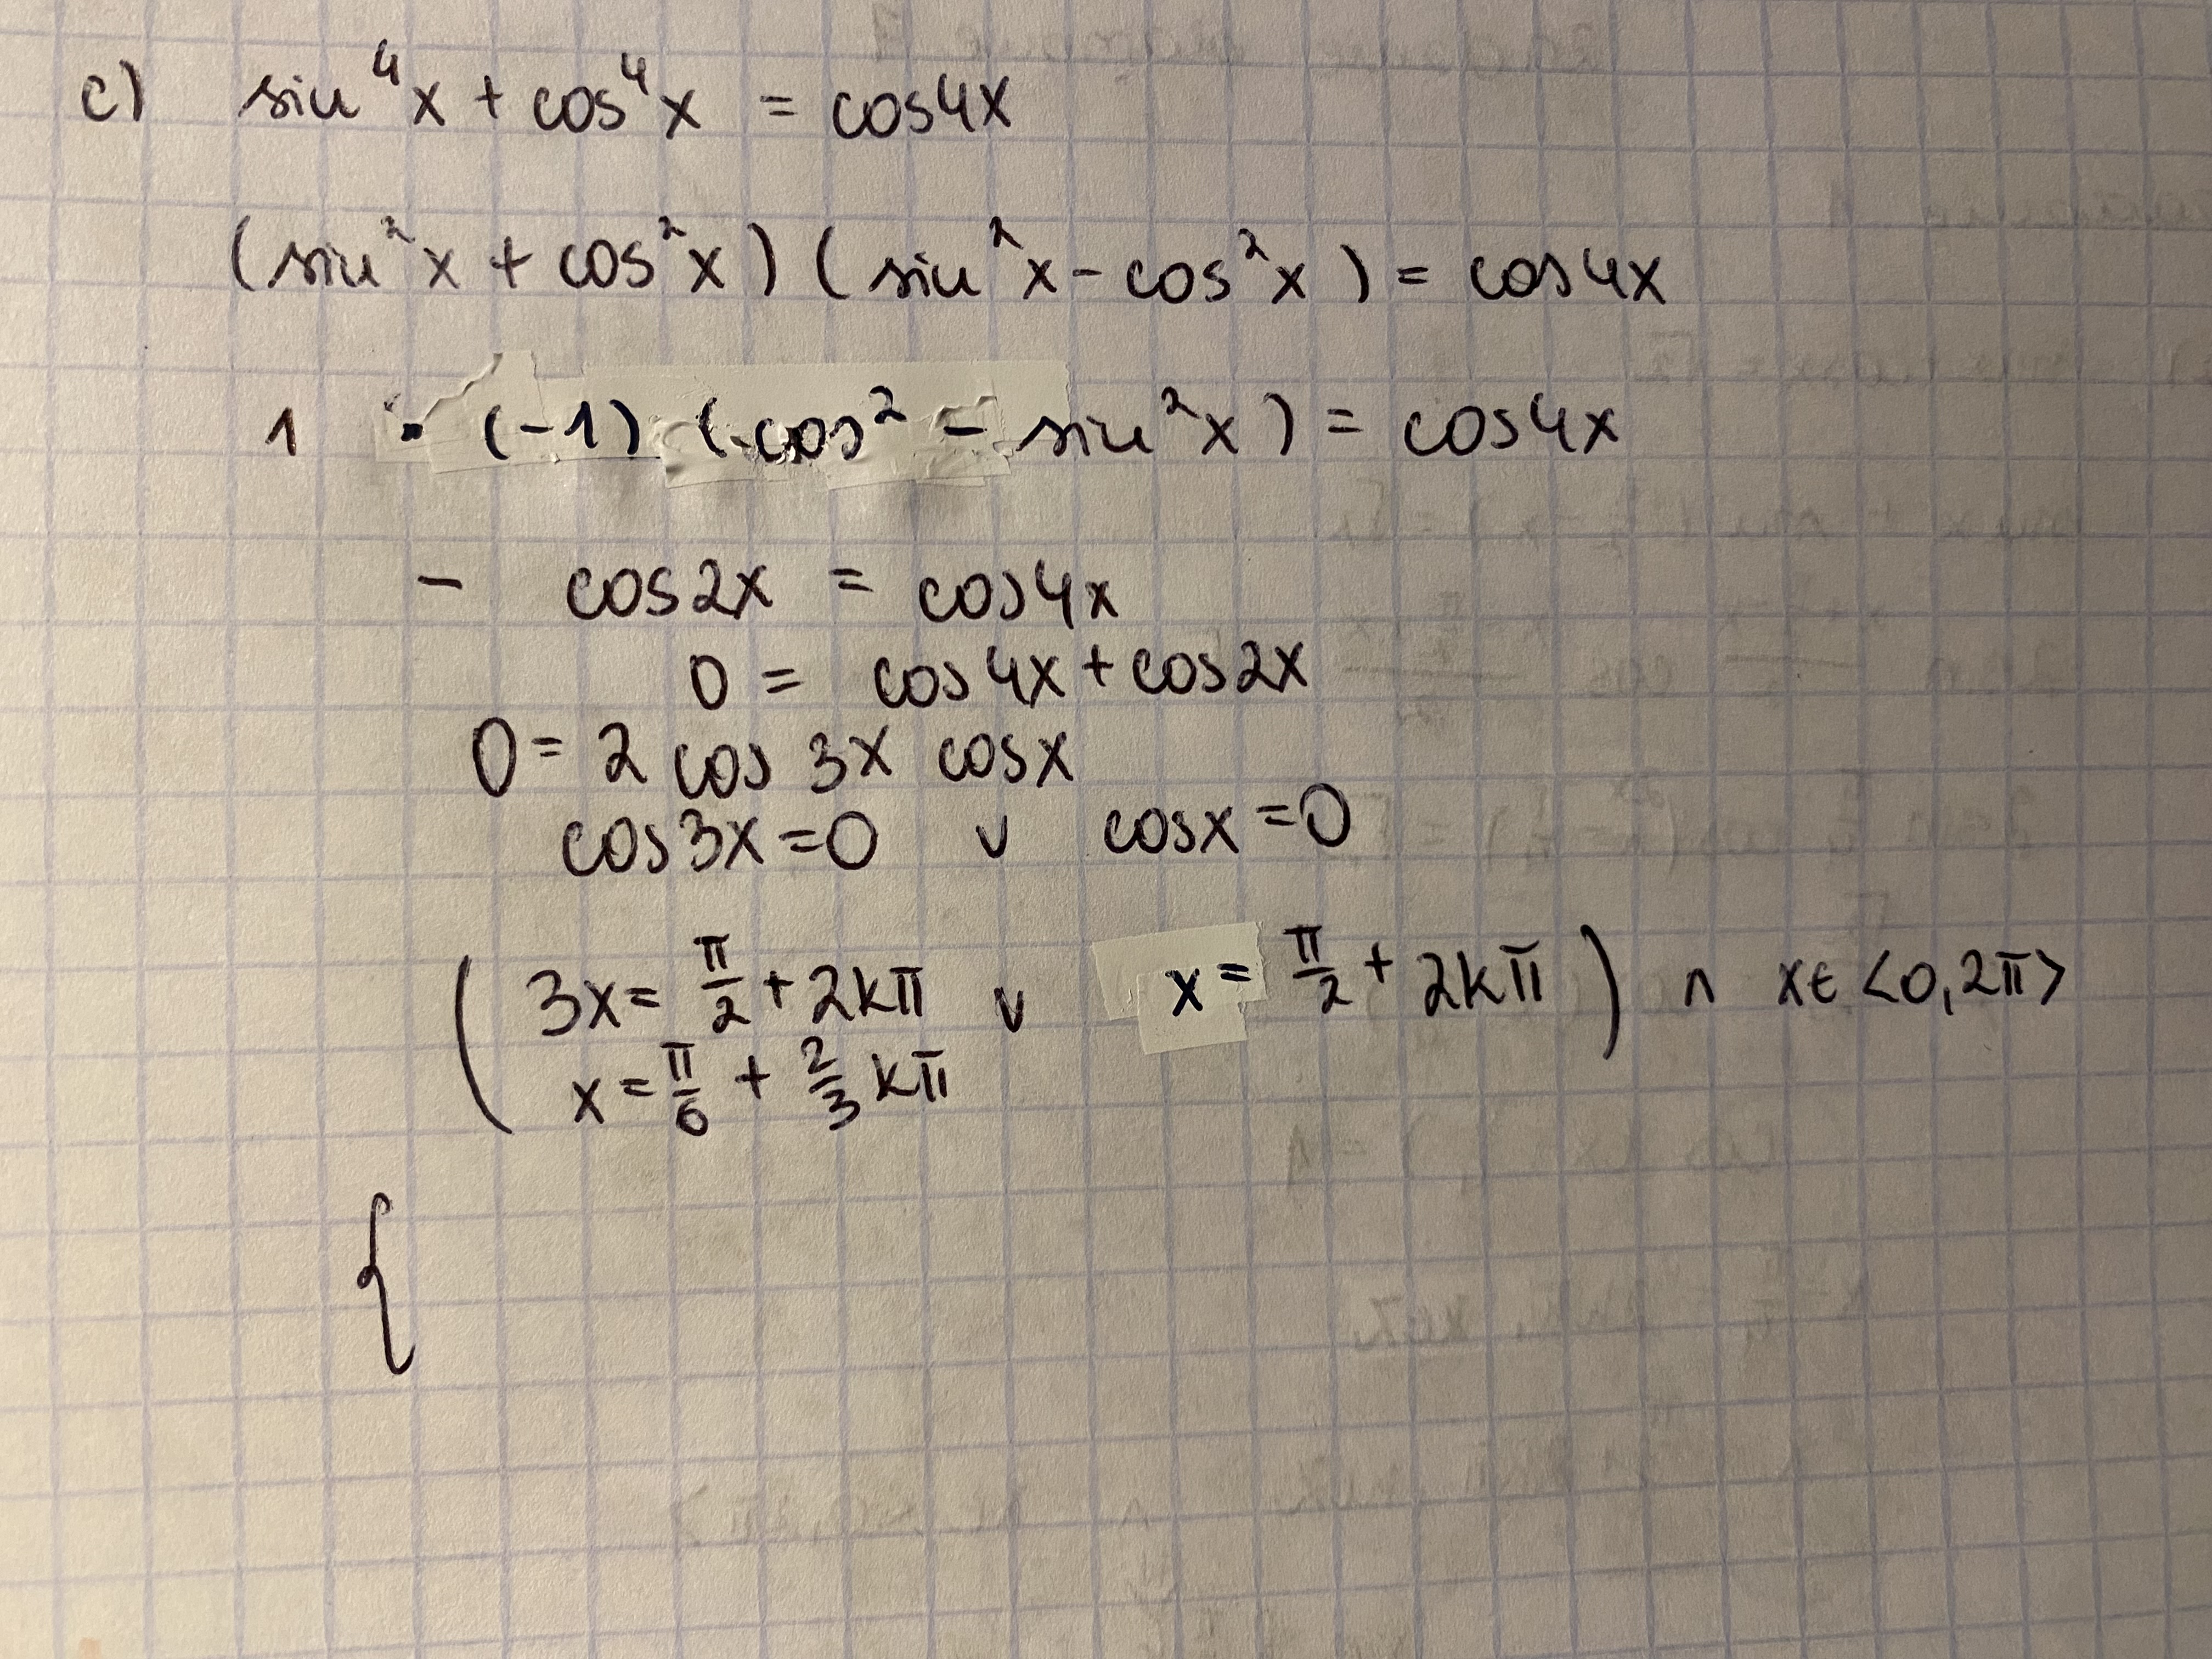 c) sin⁴x + cos⁴x = cos4x
(sin²x + cos²x) (sin²x - cos²x) = cos4x
1 · (-1) (cos² - sin²x) = cos4x
- cos2x = cos4x
0 = cos4x + cos2x
0 = 2 cos 3x cosx
cos3x = 0 ∨ cosx = 0
( 3x = π/2 + 2kπ ∨ x = π/2 + 2kπ ) ∧ x ∈ <0, 2π>
x = π/6 + 2/3 kπ
{